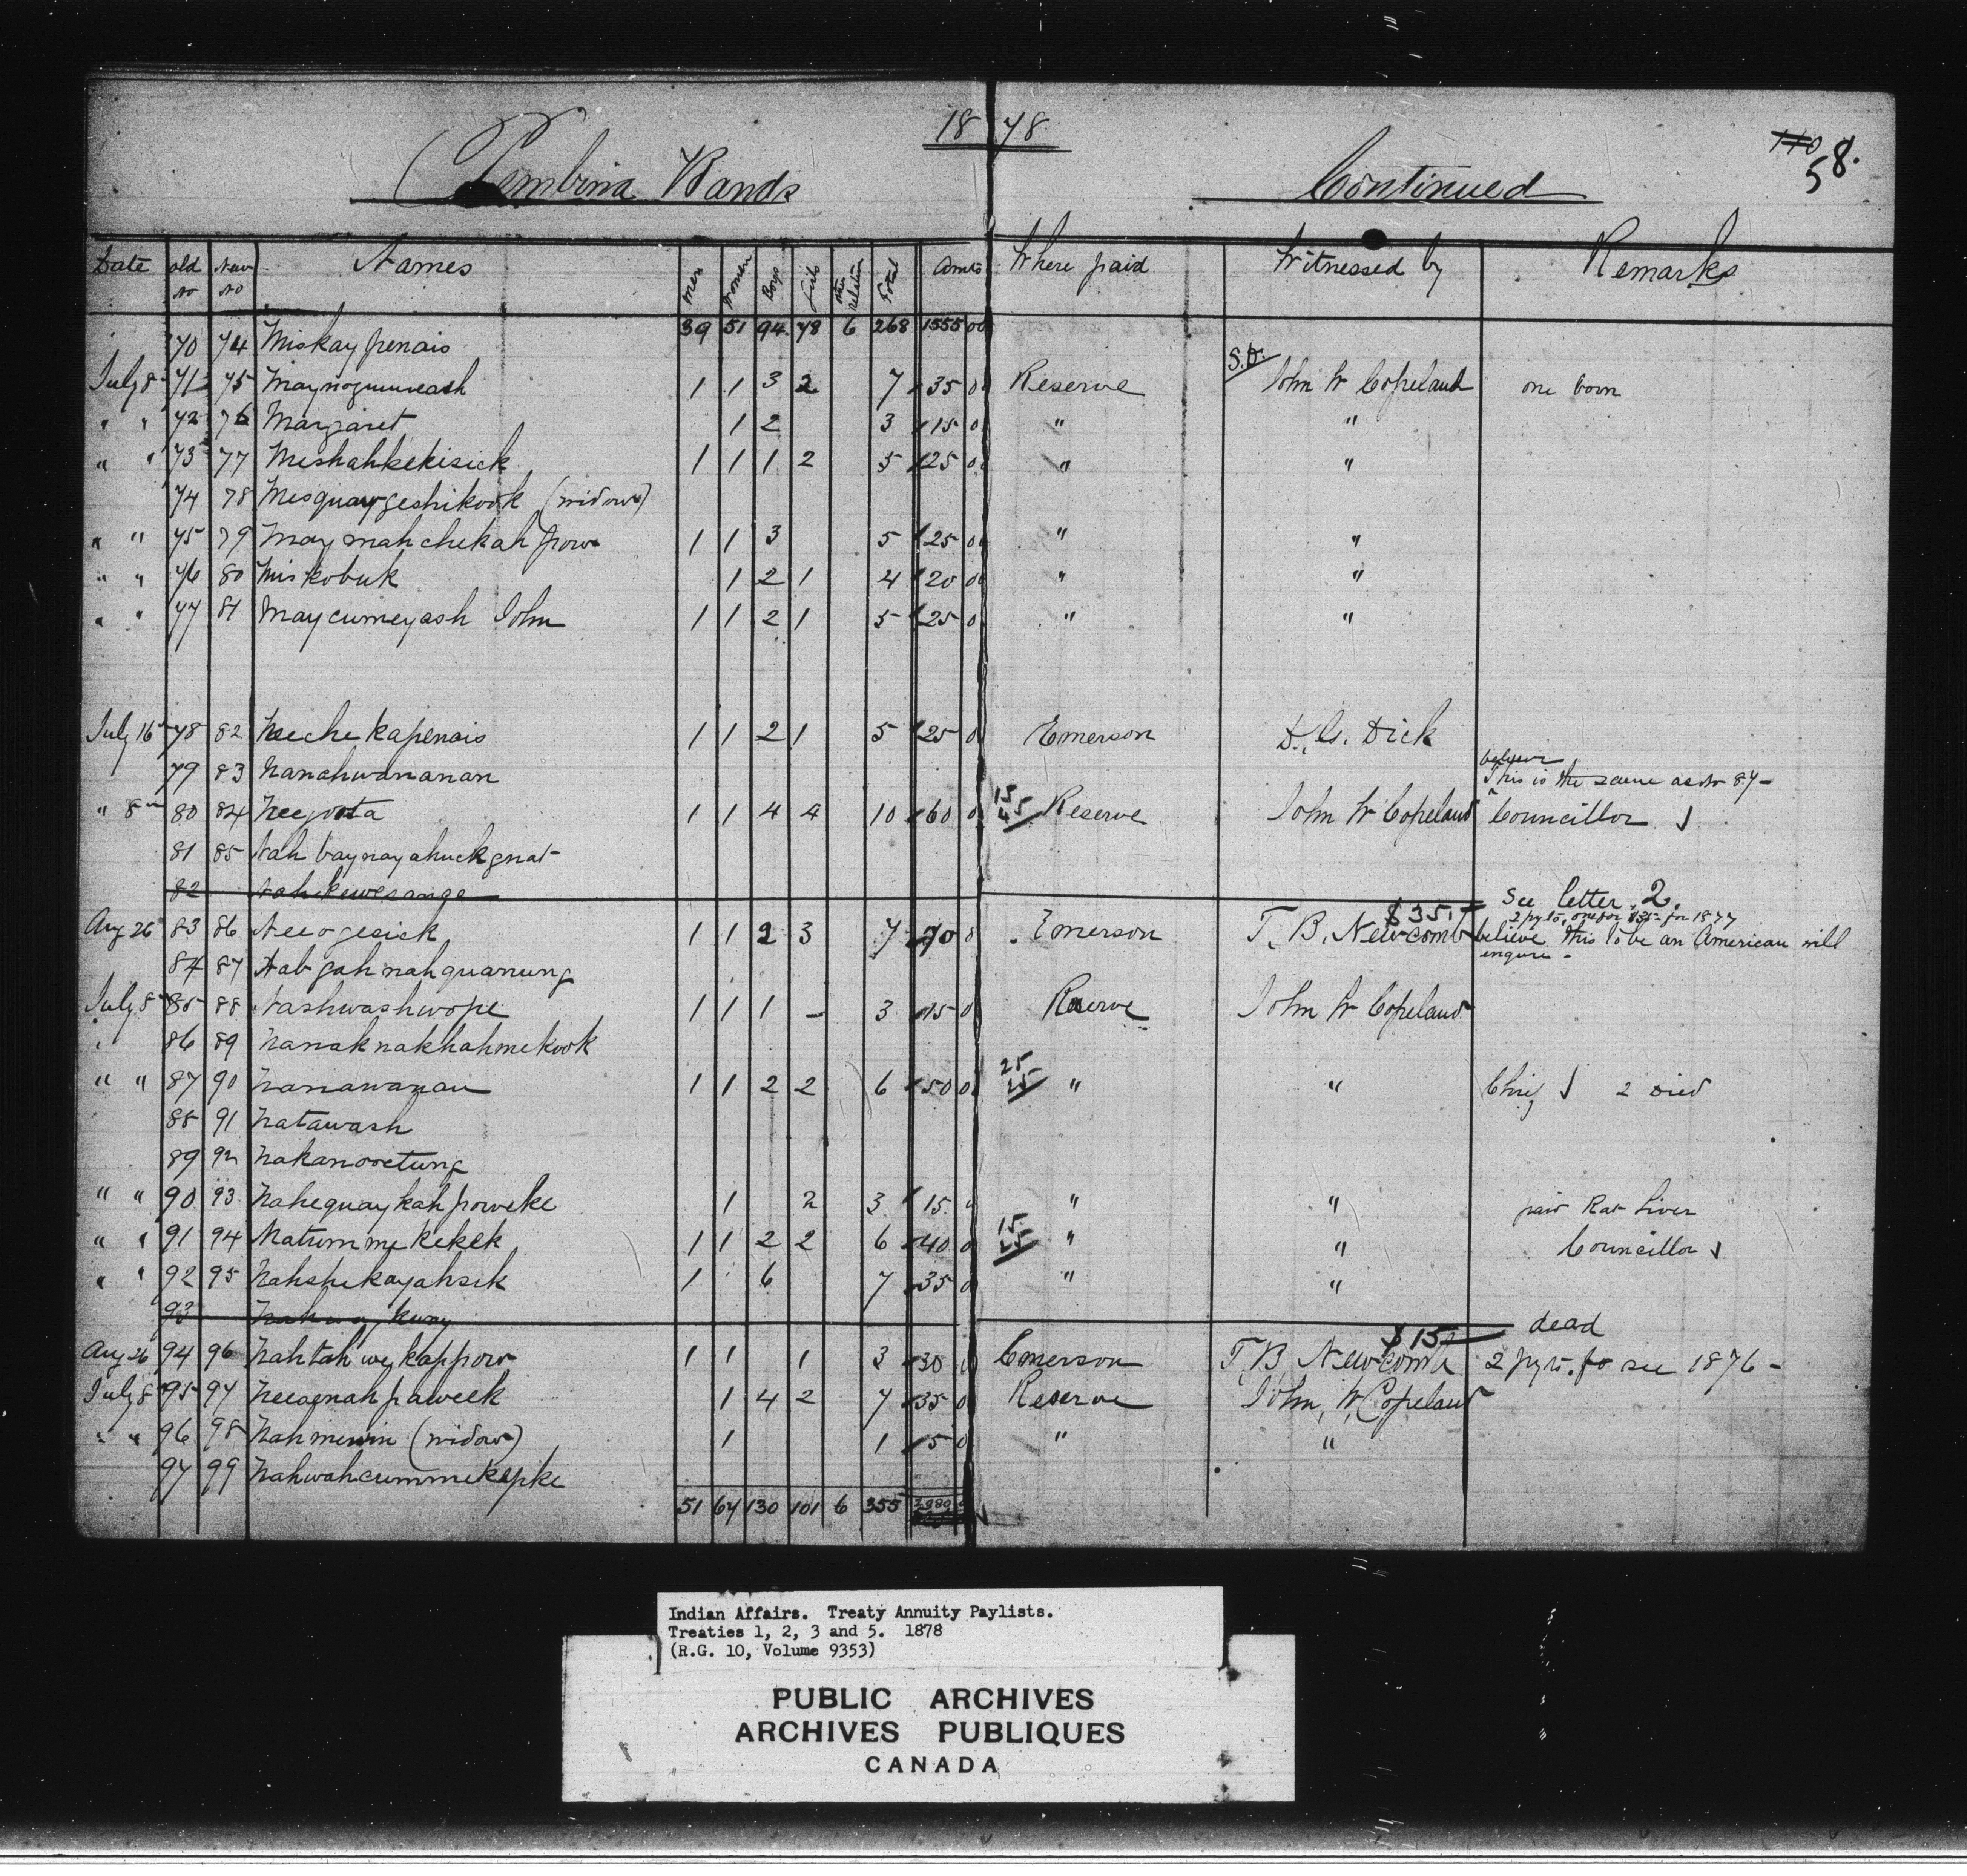 18 78
Pembina Bands Continued
110 58.
Date old No New No Names Men Women Boys Girls other relation Total Amts Where paid Witnessed by Remarks
39 51 94 78 6 268 1555 00
70 74 Miskay penais
July 8 71 75 1 1 3 2 7 35 0 Reserve S.D. John W Copeland one born
" " 72 76 Margaret 1 2 3 15 0 " "
" " 73 77 Meshahkekisick 1 1 1 2 5 25 0 " "
74 78 Mesquaygeshikook (widow)
" " 75 79 May mah chekah pow 1 1 3 5 25 00 " "
" " 76 80 Miskobuk 1 2 1 4 20 00 " "
" " 77 81 Maycumeyash John 1 1 2 1 5 25 0 " "
July 16 78 82 Neeche kapenais 1 1 2 1 5 25 0 Emerson D. G. Dick
believe
79 83 Nanahwananan This is the same as No 87 -
" 8 80 84 Neejoota 1 1 4 4 10 60 0 15 45 Reserve John W Copeland Councillor
81 85 Nah baynayahuckgnat
82 Nahkewesange See letter 2.
$35. 2 pyts, one for $35 for 1877
Aug 26 83 86 Neeogesick 1 1 2 3 7 70 0 Emerson T. B. Newcomb believe this to be an American will
enquire -
84 87 Nabgahnahquanung
July 8 85 88 Nashwashwope 1 1 1 - 3 15 0 Reserve John W Copeland
86 89 Nanaknakhahmekook
" " 87 90 Nanawanan 1 1 2 2 6 50 0 25 25 " " Chief 2 Died
88 91 Natawash
89 92 Nakanooetung
" " 90 93 Nahequaykah poweke 1 2 3 15 0 " " paid Rat River
" " 91 94 Natumme kekek 1 1 2 2 6 40 0 15 25 " " Councillor
" " 92 95 Nahshekayahsik 1 6 7 35 0 " "
93 Nahwaykway dead
$15
Aug 26 94 96 Nahtah wey kappow 1 1 1 3 30 0 Emerson T. B Newcomb 2 pyts. see 1876 -
July 8 95 97 Neesenah paweek 1 4 2 7 35 0 Reserve John W Copeland
" " 96 98 Nahmewin (widow) 1 1 5 0 " "
97 99 Nahwahcummekepke
51 64 130 101 6 355
Indian Affairs. Treaty Annuity Paylists.
Treaties 1, 2, 3 and 5. 1878
(R.G. 10, Volume 9353)
PUBLIC ARCHIVES
ARCHIVES PUBLIQUES
CANADA